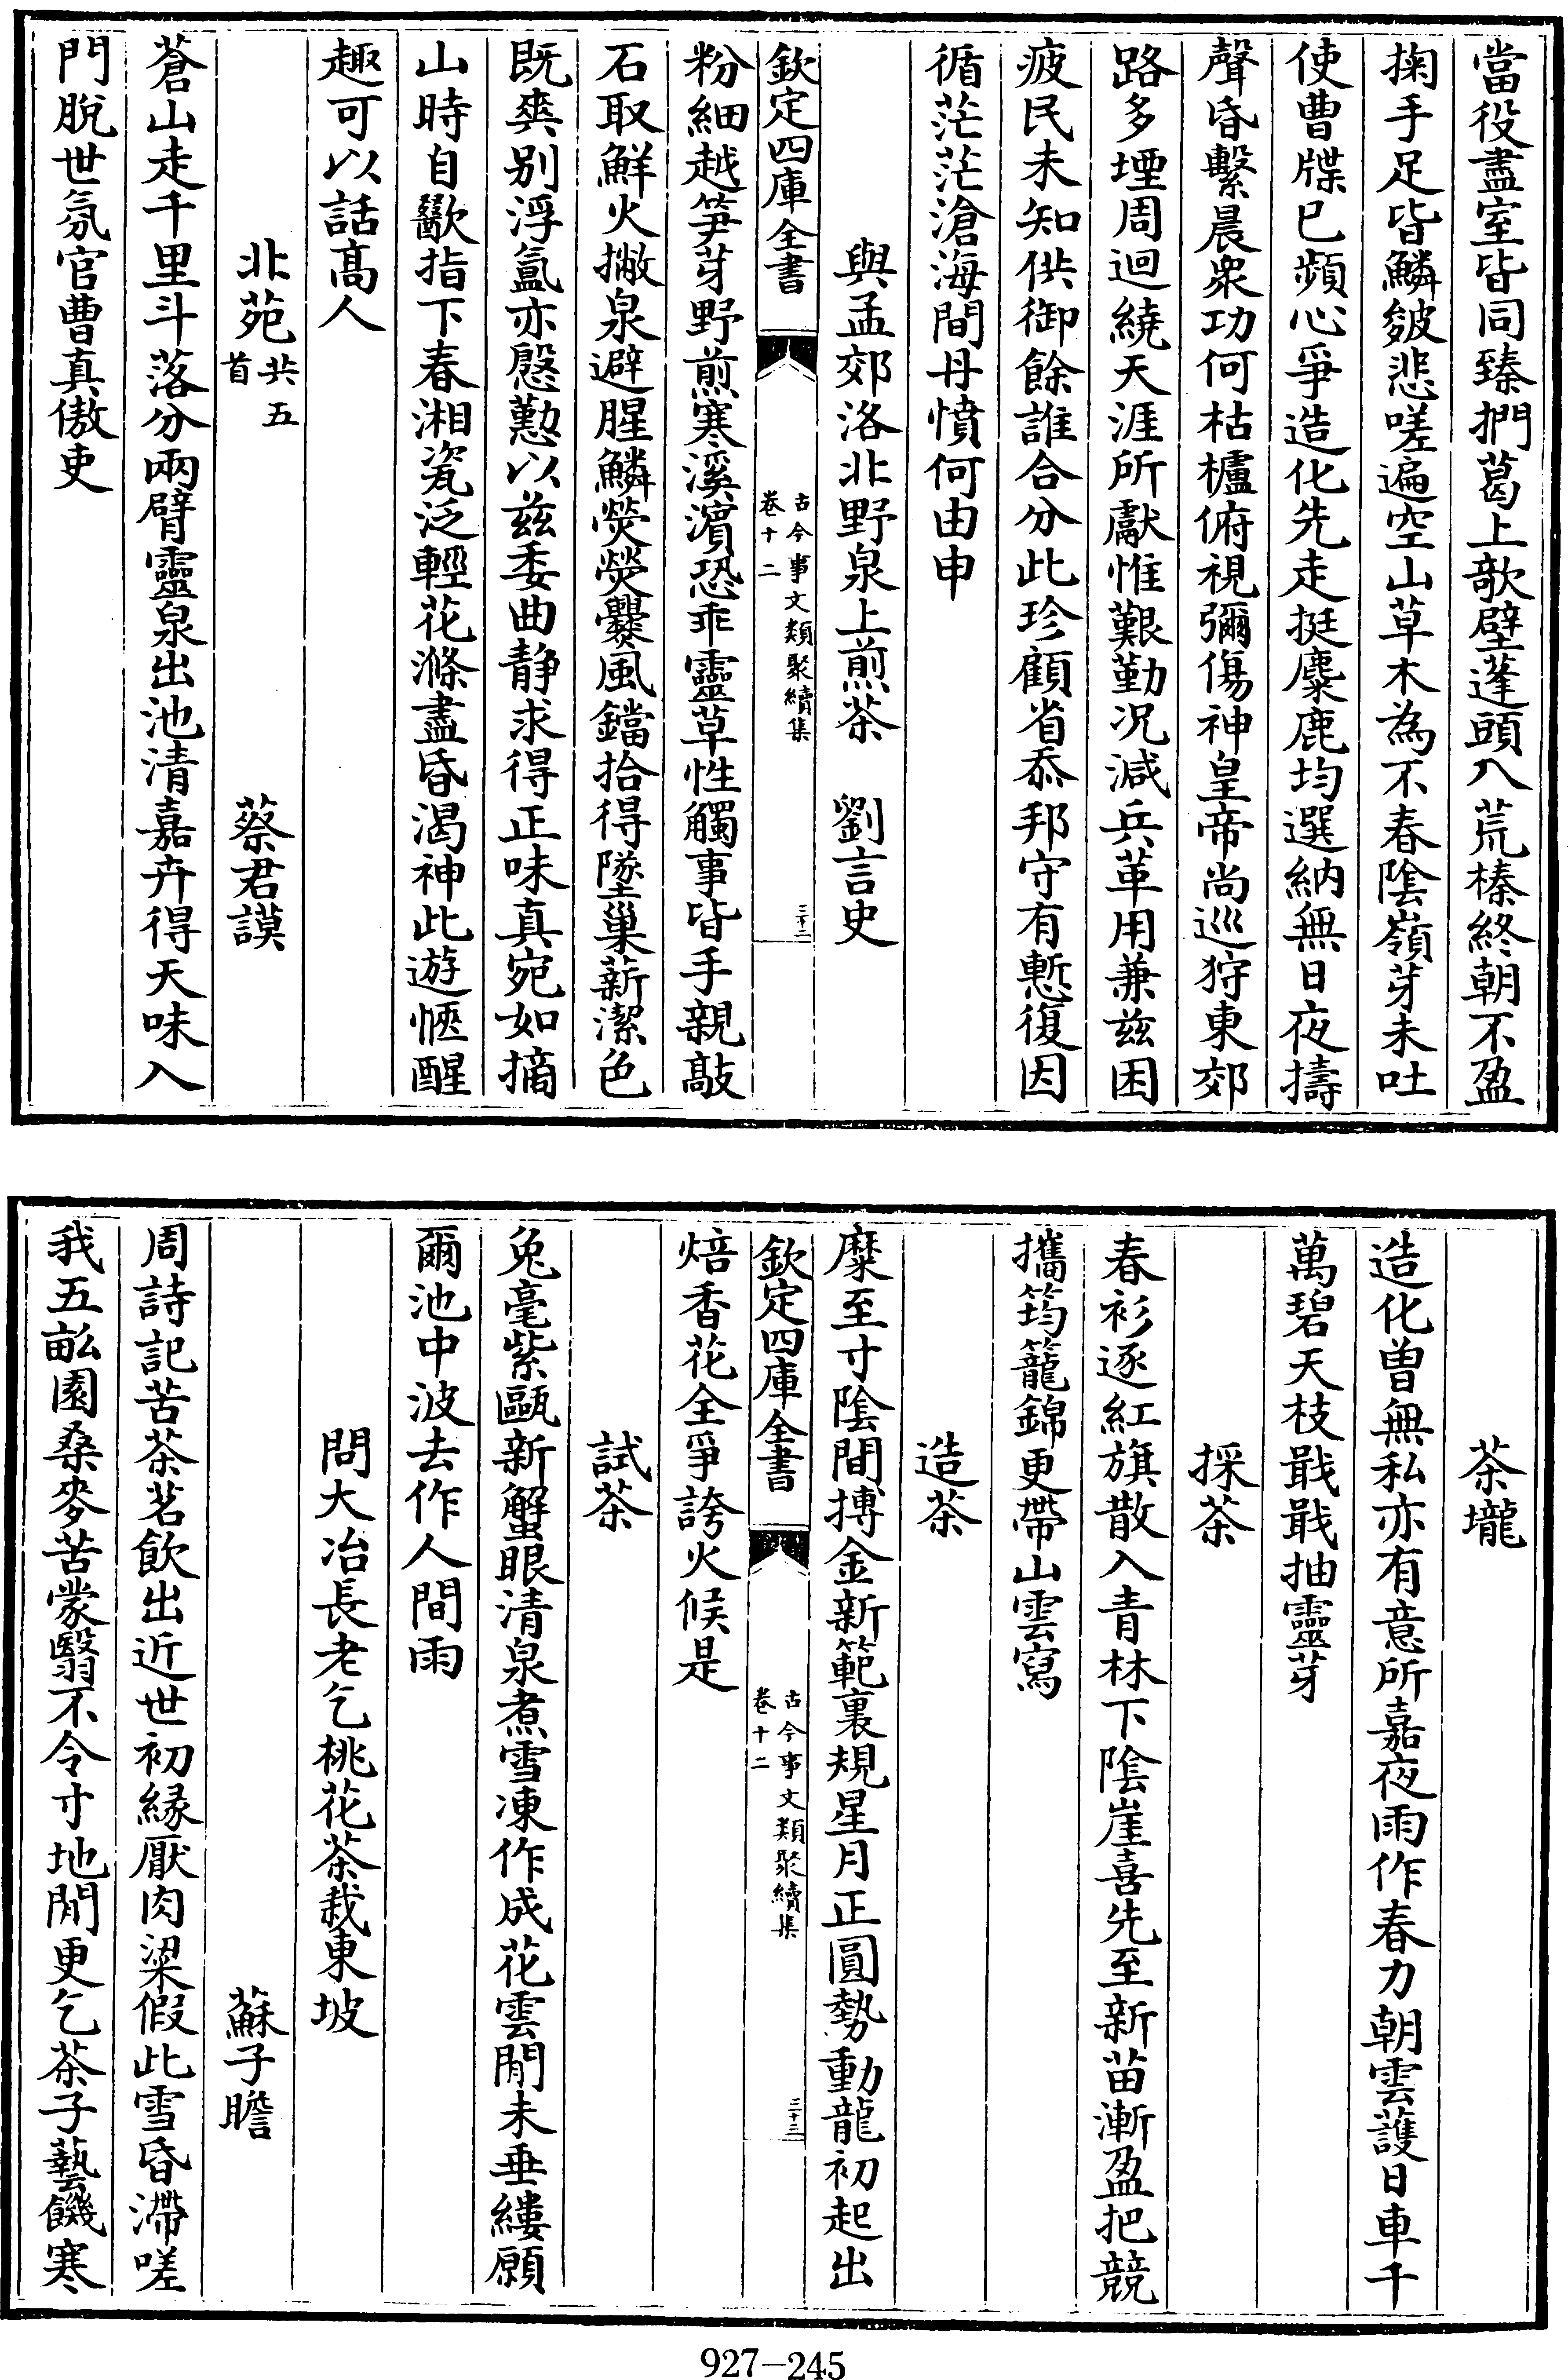 當役盡室皆同臻捫葛上欹壁蓬頭入荒榛終朝不盈
掬手足皆鱗皴悲嗟遍空山草木為不春陰嶺芽未吐
使曹牒已頻心爭造化先走挺麋鹿均選納無日夜擣
聲昏繫晨衆功何枯櫨俯視彌傷神皇帝尚巡狩東郊
路多堙周迴繞天涯所獻惟艱勤況減兵革用兼茲困
疲民未知供御餘誰合分此珍顧省忝邦守有慙復因
循茫茫滄海間丹憤何由申
與孟郊洛北野泉上煎茶 劉言史
欽定四庫全書 古今事文類聚續集 卷十二 三十二
粉細越笋芽野煎寒溪濱恐乖靈草性觸事皆手親敲
石取鮮火撇泉避腥鱗熒熒爨風鐺拾得墜巢薪潔色
既爽别浮氳亦慇懃以兹委曲静求得正味真宛如摘
山時自歠指下春湘瓷泛輕花滌盡昏渴神此遊愜醒
趣可以話髙人
北苑共五首 蔡君謨
蒼山走千里斗落分兩臂靈泉出池清嘉卉得天味入
門脫世氛官曹真傲吏
茶壠
造化曽無私亦有意所嘉夜雨作春力朝雲護日車千
萬碧天枝戢戢抽靈芽
採茶
春衫逐紅旗散入青林下陰崖喜先至新苗漸盈把競
攜筠籠錦更帶山雲寫
造茶
糜至寸陰間搏金新範裏規星月正圓勢動龍初起出
欽定四庫全書 古今事文類聚續集 卷十二 三十三
焙香花全爭誇火候是
試茶
兔毫紫甌新蟹眼清泉煮雪凍作成花雲閒未垂縷願
爾池中波去作人間雨
問大冶長老乞桃花茶栽東坡
蘇子瞻
周詩記苦茶茗飲出近世初緣厭肉粱假此雪昏滯嗟
我五畝園桑麥苦蒙翳不令寸地閒更乞茶子藝饑寒
927-245